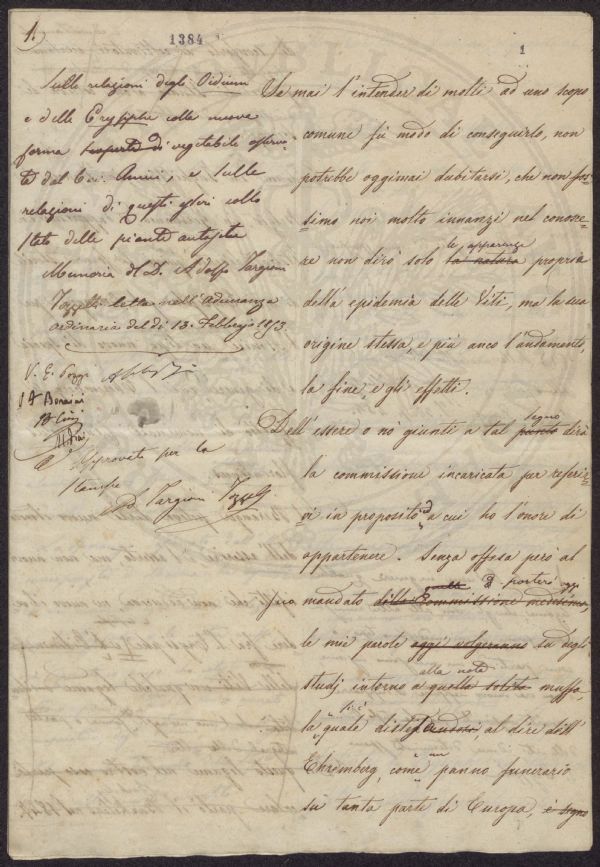 1.
1384
1
Sulle relazioni degli Oidium
e delle Erysiphe colla nuova
forma scoperta di vegetabile osserva-
ta dal Cav. Amici, e sulle
relazioni di questi esseri collo
stato delle piante autosite
Memoria del D. Adolfo Targioni
Tozzetti letta nell'adunanza
ordinaria del dì 13. Febbrajo 1853.
V. E.
Approvato per la
stampa
Ad Targioni Tozzetti
Se mai l'intender di molti ad uno scopo
comune fu modo di conseguirlo, non
potrebbe oggimai dubitarsi, che non fos-
simo noi molto innanzi nel conosce-
re non dirò solo la natura le apparenze propria
dell'a epidemia delle Viti, ma la sua
origine stessa, e più anco l'andamento,
la fine, e gli effetti.
Dell'essere o nò giunti a tal punto segno dirà
la commissione incaricata per riferir-
vi in proposito, a cui ho l'onore di
appartenere. Senza offesa però al
suo mandato della Commissione medesima, porterò oggi
le mie parole oggi volgeranno su degli
studj intorno a quella solita alla nota muffa,
la quale al dire dell'
Ehremberg, come un panno funerario
su tanta parte di Europa, è